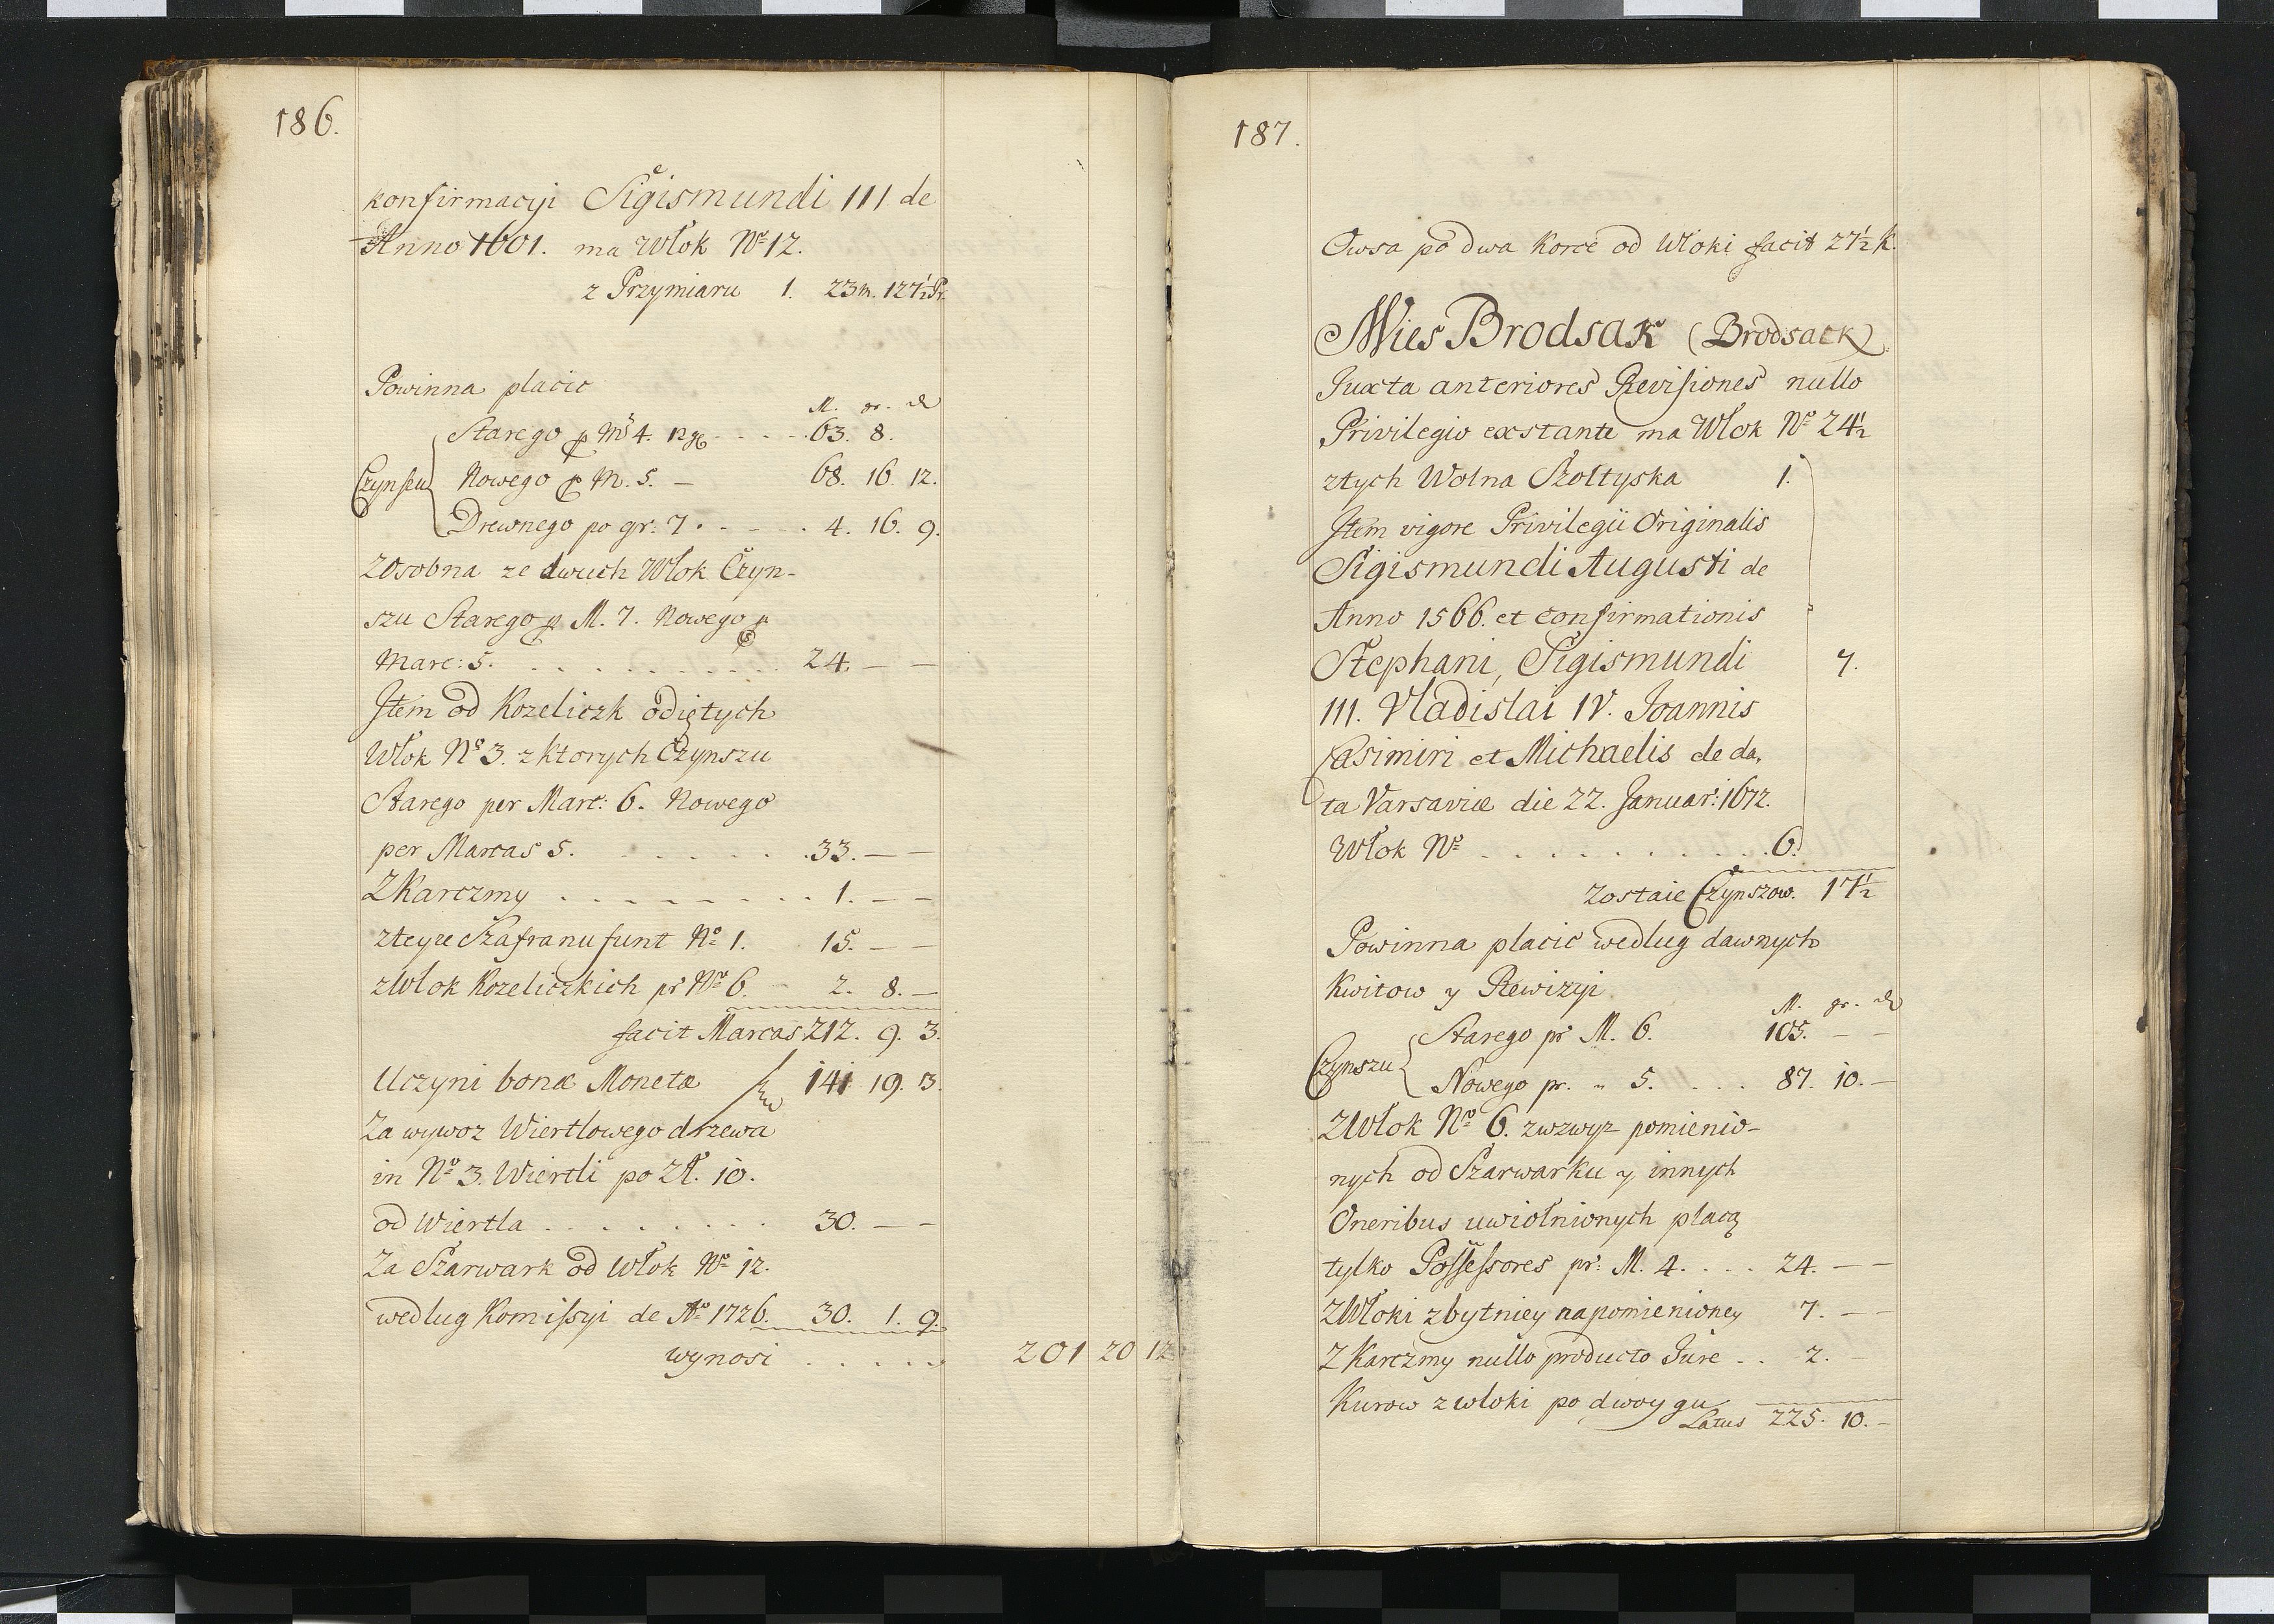 186.
konfirmacyi Sigismundi III de
Anno 1601. ma Włok No 12.
z Przymiaru 1. 23 m. 127½ Pr.
Powinna placic
M. gr. d
Czynszu
Starego p M 4. 12 g 63. 8.
Nowego p M. 5. – 68. 16. 12.
Drewnego po gr: 7. 4. 16. 9.
Zosobna ze dwuch Włok Czyn-
szu Starego p M. 7. Nowego p
Marc: 5. 24. – –
Item od Kozeliczk odiętych
Włok No 3. z ktorych Czynszu
Starego per Marc: 6. Nowego
per Marcas 5. 33. – –
Z Karczmy 1. – –
zteyze Szafranu funt No 1. 15. – –
z Włok Kozeliczkich pr No 6. – 2. 8. –
facit Marcas 212. 9. 3.
Uczyni bonæ Monetæ 141 19. 13.
Za wywoz Wiertlowego drzewa
in No 3. Wiertli po Zł. 10.
od Wiertla 30. – –
Za Szarwark od Włok No 12.
według Komissyi de Ao 1726. 30. 1. 9.
wynosi 201 20 12
187.
Owsa po dwa Korce od Włoki facit 27½ K.
Wies Brodsak (Brodsack).
Juxta anteriores Revisiones nullo
Privilegio exstante ma Włok No 24½
ztych Wolna Szoltyska 1.
Item vigore Privilegii Originalis
Sigismundi Augusti de
Anno 1566. et confirmationis
Stephani, Sigismundi 7.
III. Vladislai IV. Joannis
Casimiri et Michaelis de da,
ta Varsaviæ die 22. Januar: 1672.
Włok No 6.
zostaie Czynszow. 17½
Powinna placic według dawnych
Kwitow y Rewizyi
M. gr. d
Czynszu
Starego pr M. 6. 105. – –
Nowego pr. " 5. 87. 10. –
Z Włok No 6. zwzwyz pomienio-
nych od Szarwarku y innych
Oneribus uwiolnionych placą
tylko Possessores pr: M. 4. 24. – –
Z Włoki zbytniey napomienioney 7. – –
Z Karczmy nullo producto Jure 2. –
Kurow z wloki po dwoygu
Latus 225. 10. –